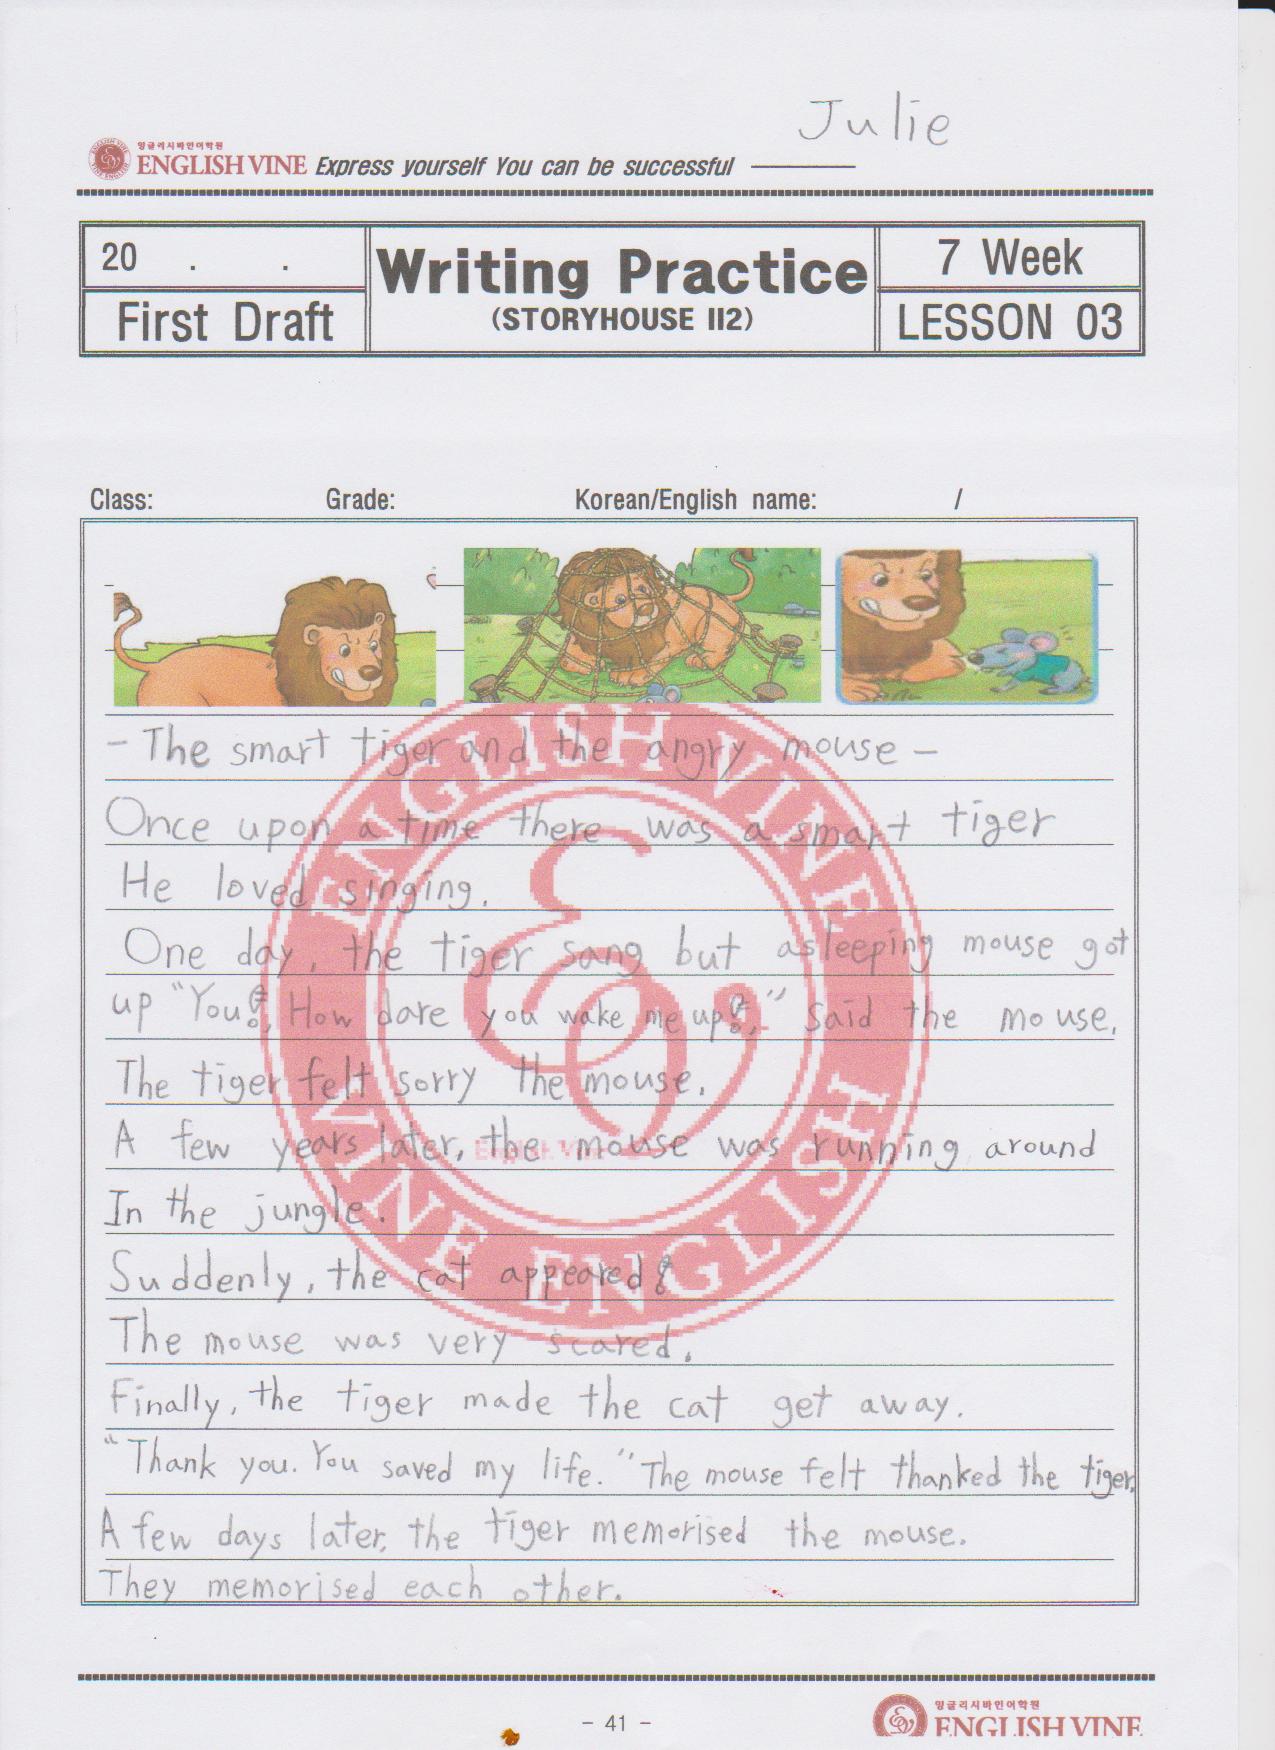 Julie
잉글리시바인어학원
ENGLISH VINE Express yourself You can be successful
20 . .
First Draft
Writing Practice
(STORYHOUSE II2)
7 Week
LESSON 03
Class: Grade: Korean/English name: /
- The smart tiger and the angry mouse -
Once upon a time there was a smart tiger
He loved singing.
One day, the tiger sang but asleeping mouse got
up "You!, How dare you wake me up!," said the mouse.
The tiger felt sorry the mouse.
A few years later, the mouse was running around
In the jungle.
Suddenly, the cat appeared!
The mouse was very scared.
Finally, the tiger made the cat get away.
"Thank you. You saved my life." The mouse felt thanked the tiger.
A few days later, the tiger memorised the mouse.
They memorised each other.
ENGLISH VINE
VINE ENGLISH
- 41 -
잉글리시바인어학원
ENGLISH VINE